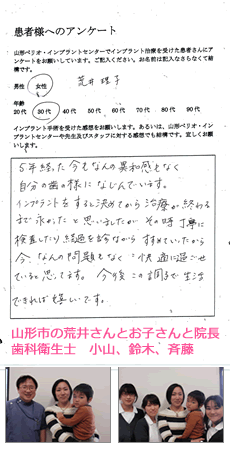 患者様へのアンケート
山形ペリオ・インプラントセンターでインプラント治療を受けた患者さんにア
ンケートをお願いしています。ご記入ください。お名前は記入なさらなくて結
構です。
男性 女性 荒井 理子
年齢
20代 30代 40代 50代 60代 70代 80代 90代
インプラント手術を受けた感想をお願いします。あるいは、山形ペリオ・イン
プラントセンターや先生及びスタッフに対する感想でも結構です。宜しくお願
いします。
5年経った今もなんの異和感もなく
自分の歯の様になじんでいます。
インプラントをすると決めてから治療が終わる
まで永かったと思いましたが その時丁寧に
検査したり経過を診ながら すすめていたから
今、なんの問題もなく 快適に過ごせ
ていると思ってます。 今後この調子で生活
できれば嬉しいです。
山形市の荒井さんとお子さんと院長
歯科衛生士 小山、鈴木、斉藤